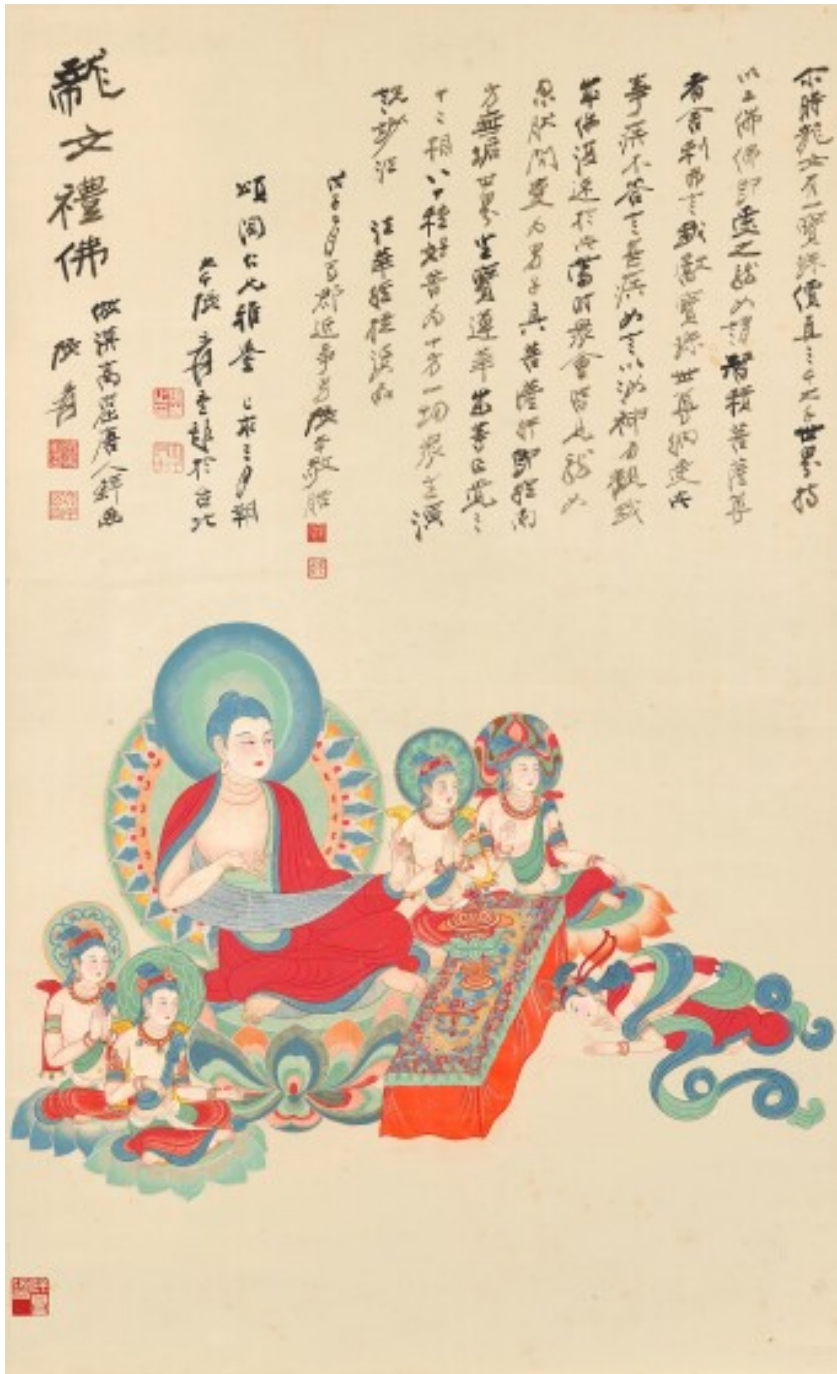 尒時龍女有一寶珠價直三千大千世界持
以上佛佛即受之龍女謂智積菩薩尊
者舍利弗言我獻寶珠世尊納受此
事疾不答言甚疾女言以汝神力觀我
成佛復速於此當時眾會皆見龍女
忽然間變為男子具菩薩行即往南
方無垢世界坐寶蓮華成等正覺三
十二相八十種好普為十方一切眾生演
說妙法 法華經提婆品
戊子 月蜀郡近事男張爰敬
頌 仁兄雅鑒 三月朔
大千張爰重題於台北
龍女禮佛
倣漠高窟唐人 畫
張爰